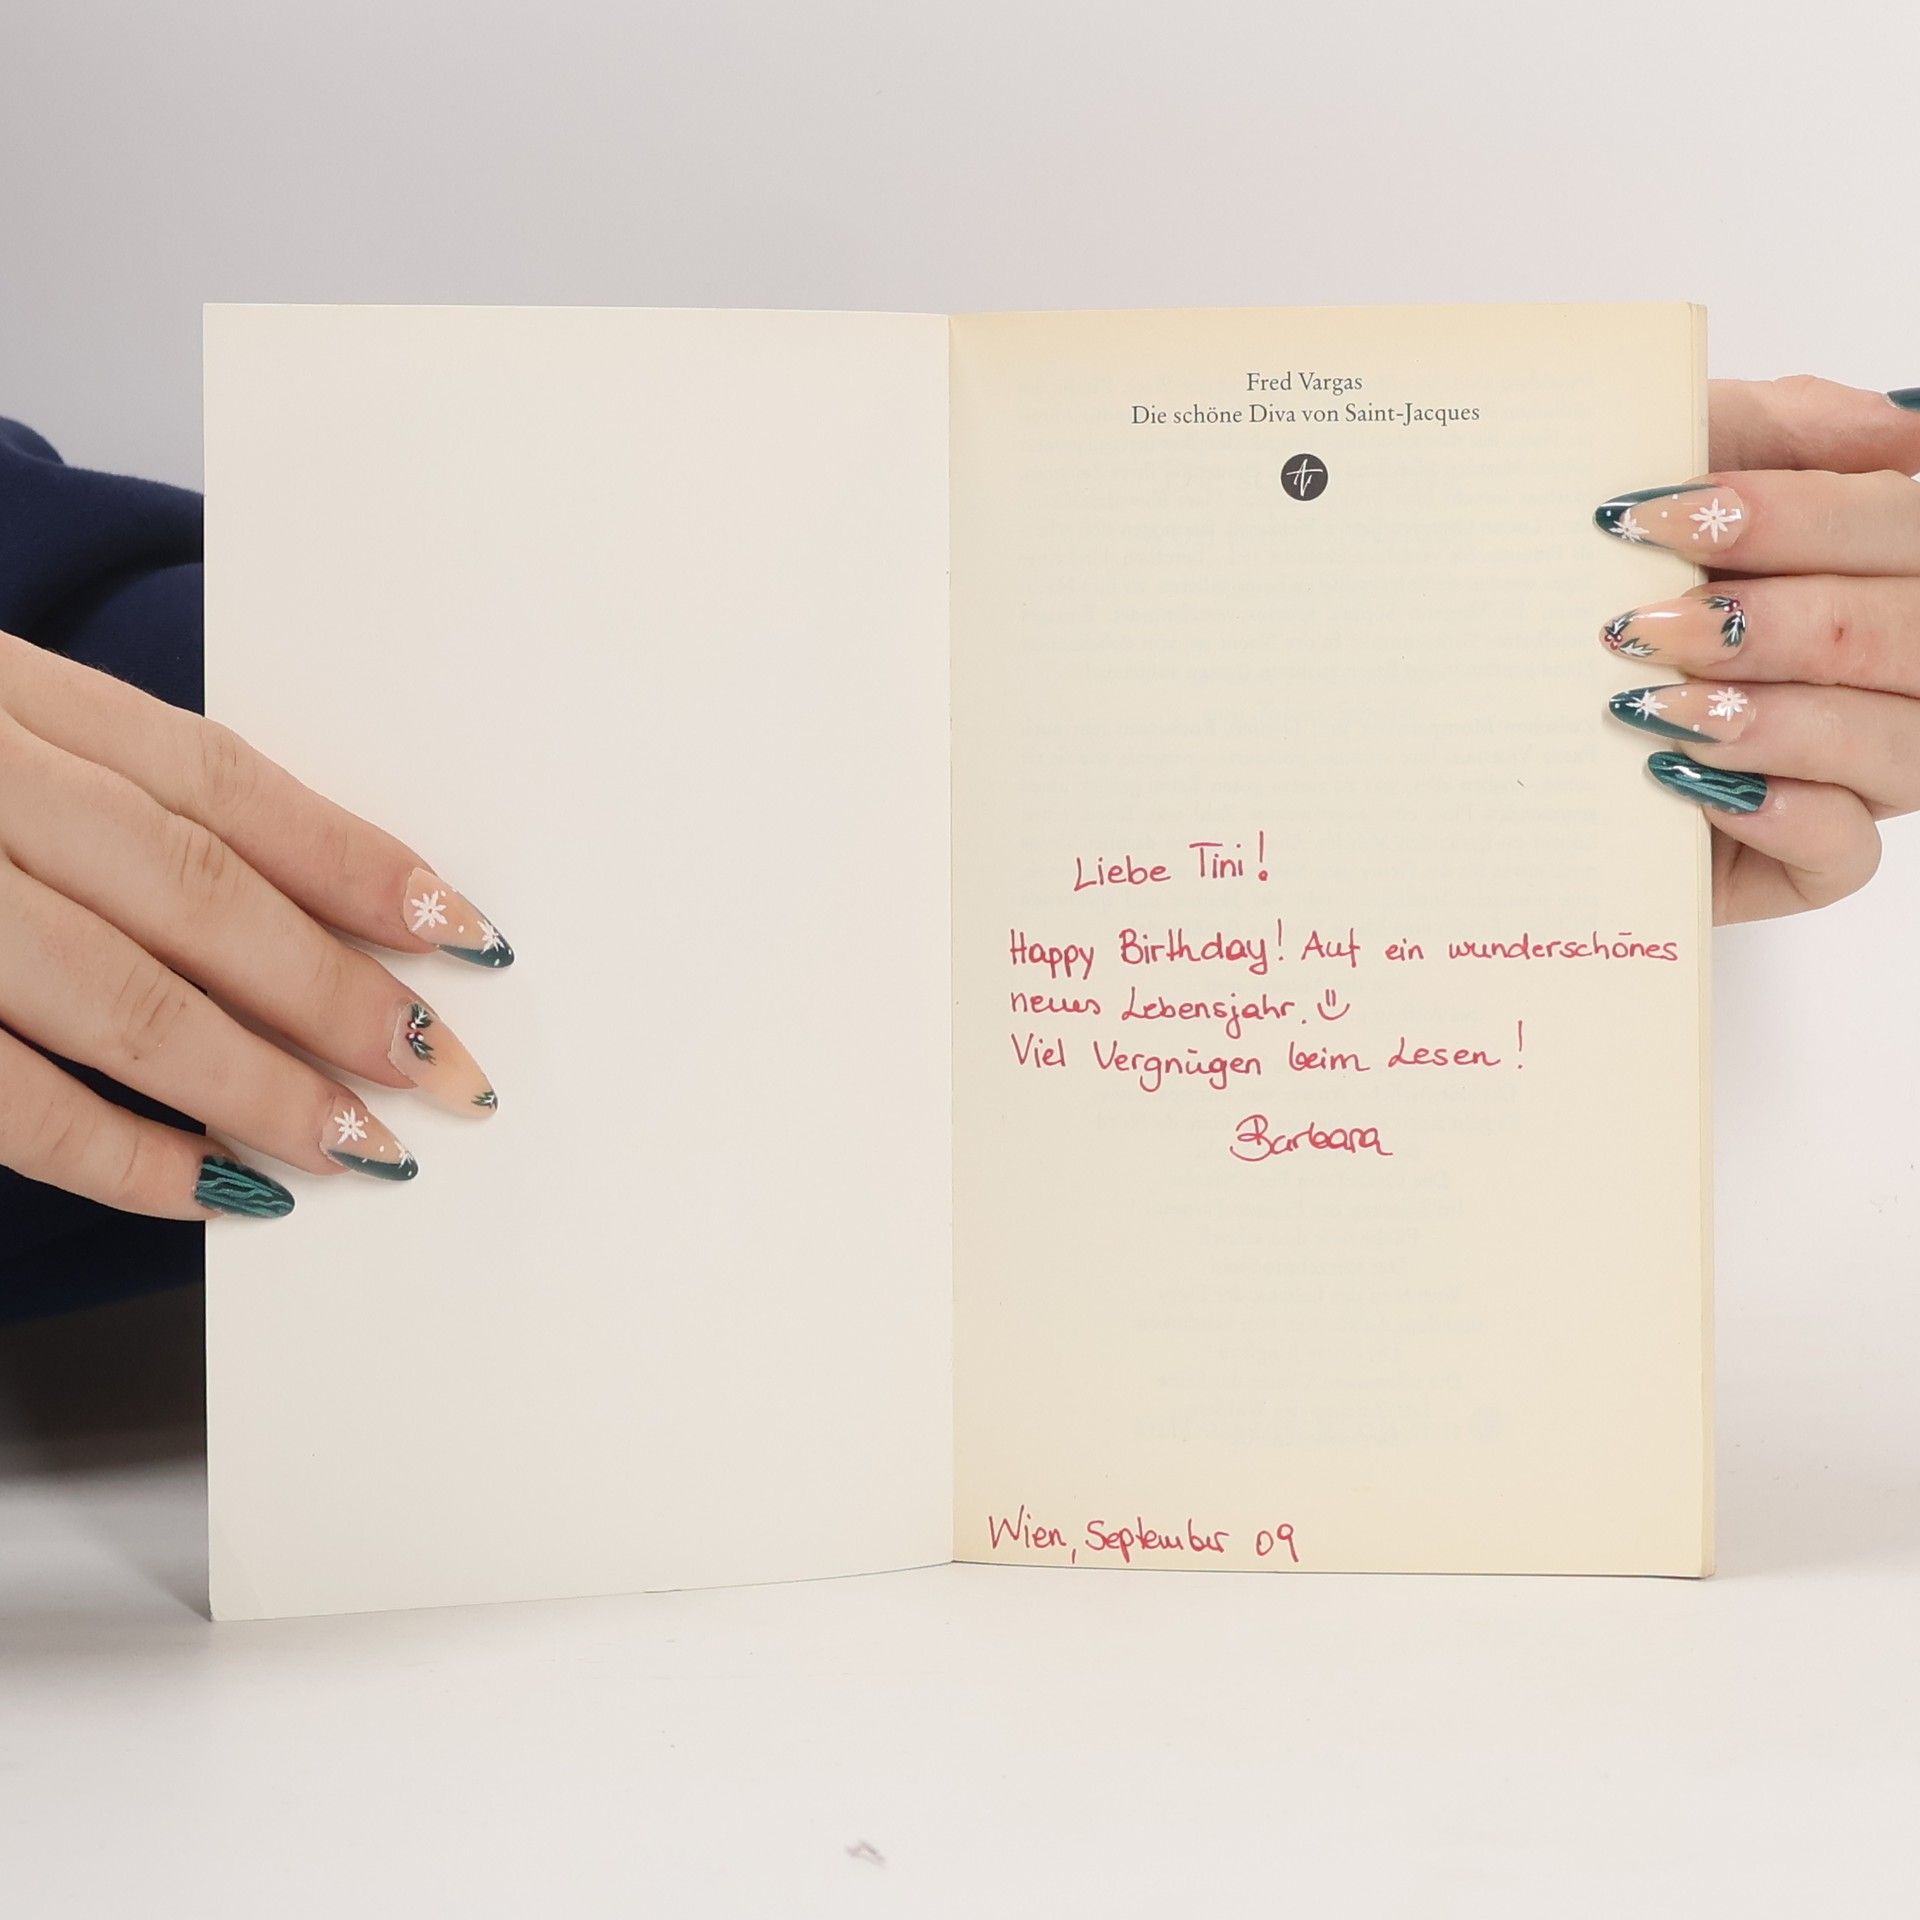 Fred Vargas
Die schöne Diva von Saint-Jacques
Liebe Tini!
Happy Birthday! Auf ein wunderschönes
neues Lebensjahr.
Viel Vergnügen beim Lesen!
Barbara
Wien, September 09